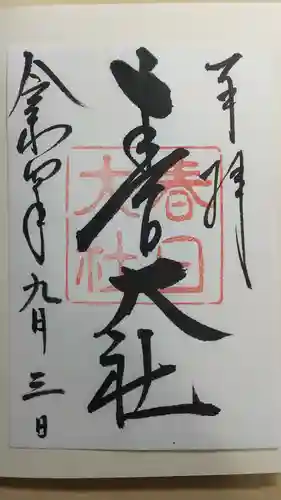 奉拝
春日大社
令和四年九月三日
春日
大社